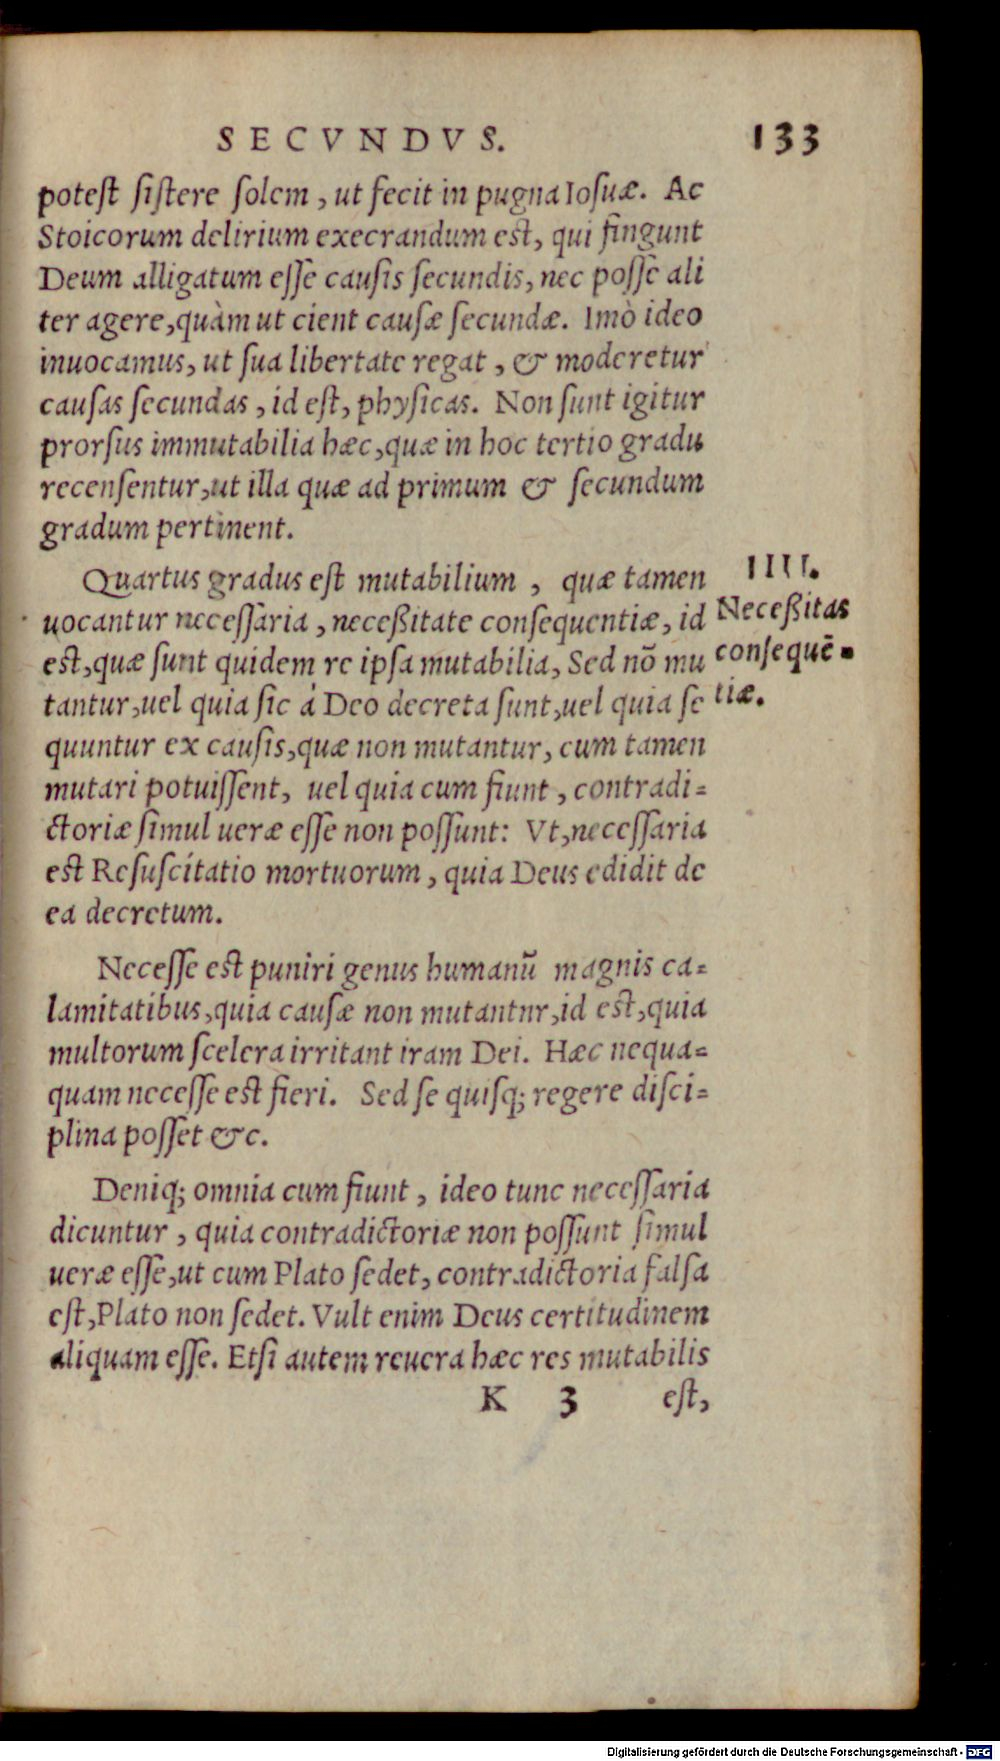 SECVNDVS. 133
potest sistere solem, ut fecit in pugna Iosuæ. Ac
Stoicorum delirium execrandum est, qui fingunt
Deum alligatum esse causis secundis, nec posse ali
ter agere, quàm ut cient causæ secundæ. Imò ideo
inuocamus, ut sua libertate regat, & moderetur
causas secundas, id est, physicas. Non sunt igitur
prorsus immutabilia hæc, quæ in hoc tertio gradu
recensentur, ut illa quæ ad primum & secundum
gradum pertinent.
Quartus gradus est mutabilium, quæ tamen
uocantur necessaria, neceßitate consequentiæ, id
est, quæ sunt quidem re ipsa mutabilia, Sed nõ mu
tantur, uel quia sic á Deo decreta sunt, uel quia se
quuntur ex causis, quæ non mutantur, cum tamen
mutari potuissent, uel quia cum fiunt, contradi=
ctoriæ simul ueræ esse non possunt: Vt, necessaria
est Resuscitatio mortuorum, quia Deus edidit de
ea decretum.
IIII.
Neceßitas
consequẽ=
tiæ.
Necesse est puniri genus humanũ magnis ca=
lamitatibus, quia causæ non mutantnr, id est, quia
multorum scelera irritant iram Dei. Hæc nequa=
quam necesse est fieri. Sed se quisq; regere disci=
plina posset &c.
Deniq; omnia cum fiunt, ideo tunc necessaria
dicuntur, quia contradictoriæ non possunt simul
ueræ esse, ut cum Plato sedet, contradictoria falsa
est, Plato non sedet. Vult enim Deus certitudinem
aliquam esse. Etsi autem reuera hæc res mutabilis
K 3 est,
Digitalisierung gefördert durch die Deutsche Forschungsgemeinschaft - DFG